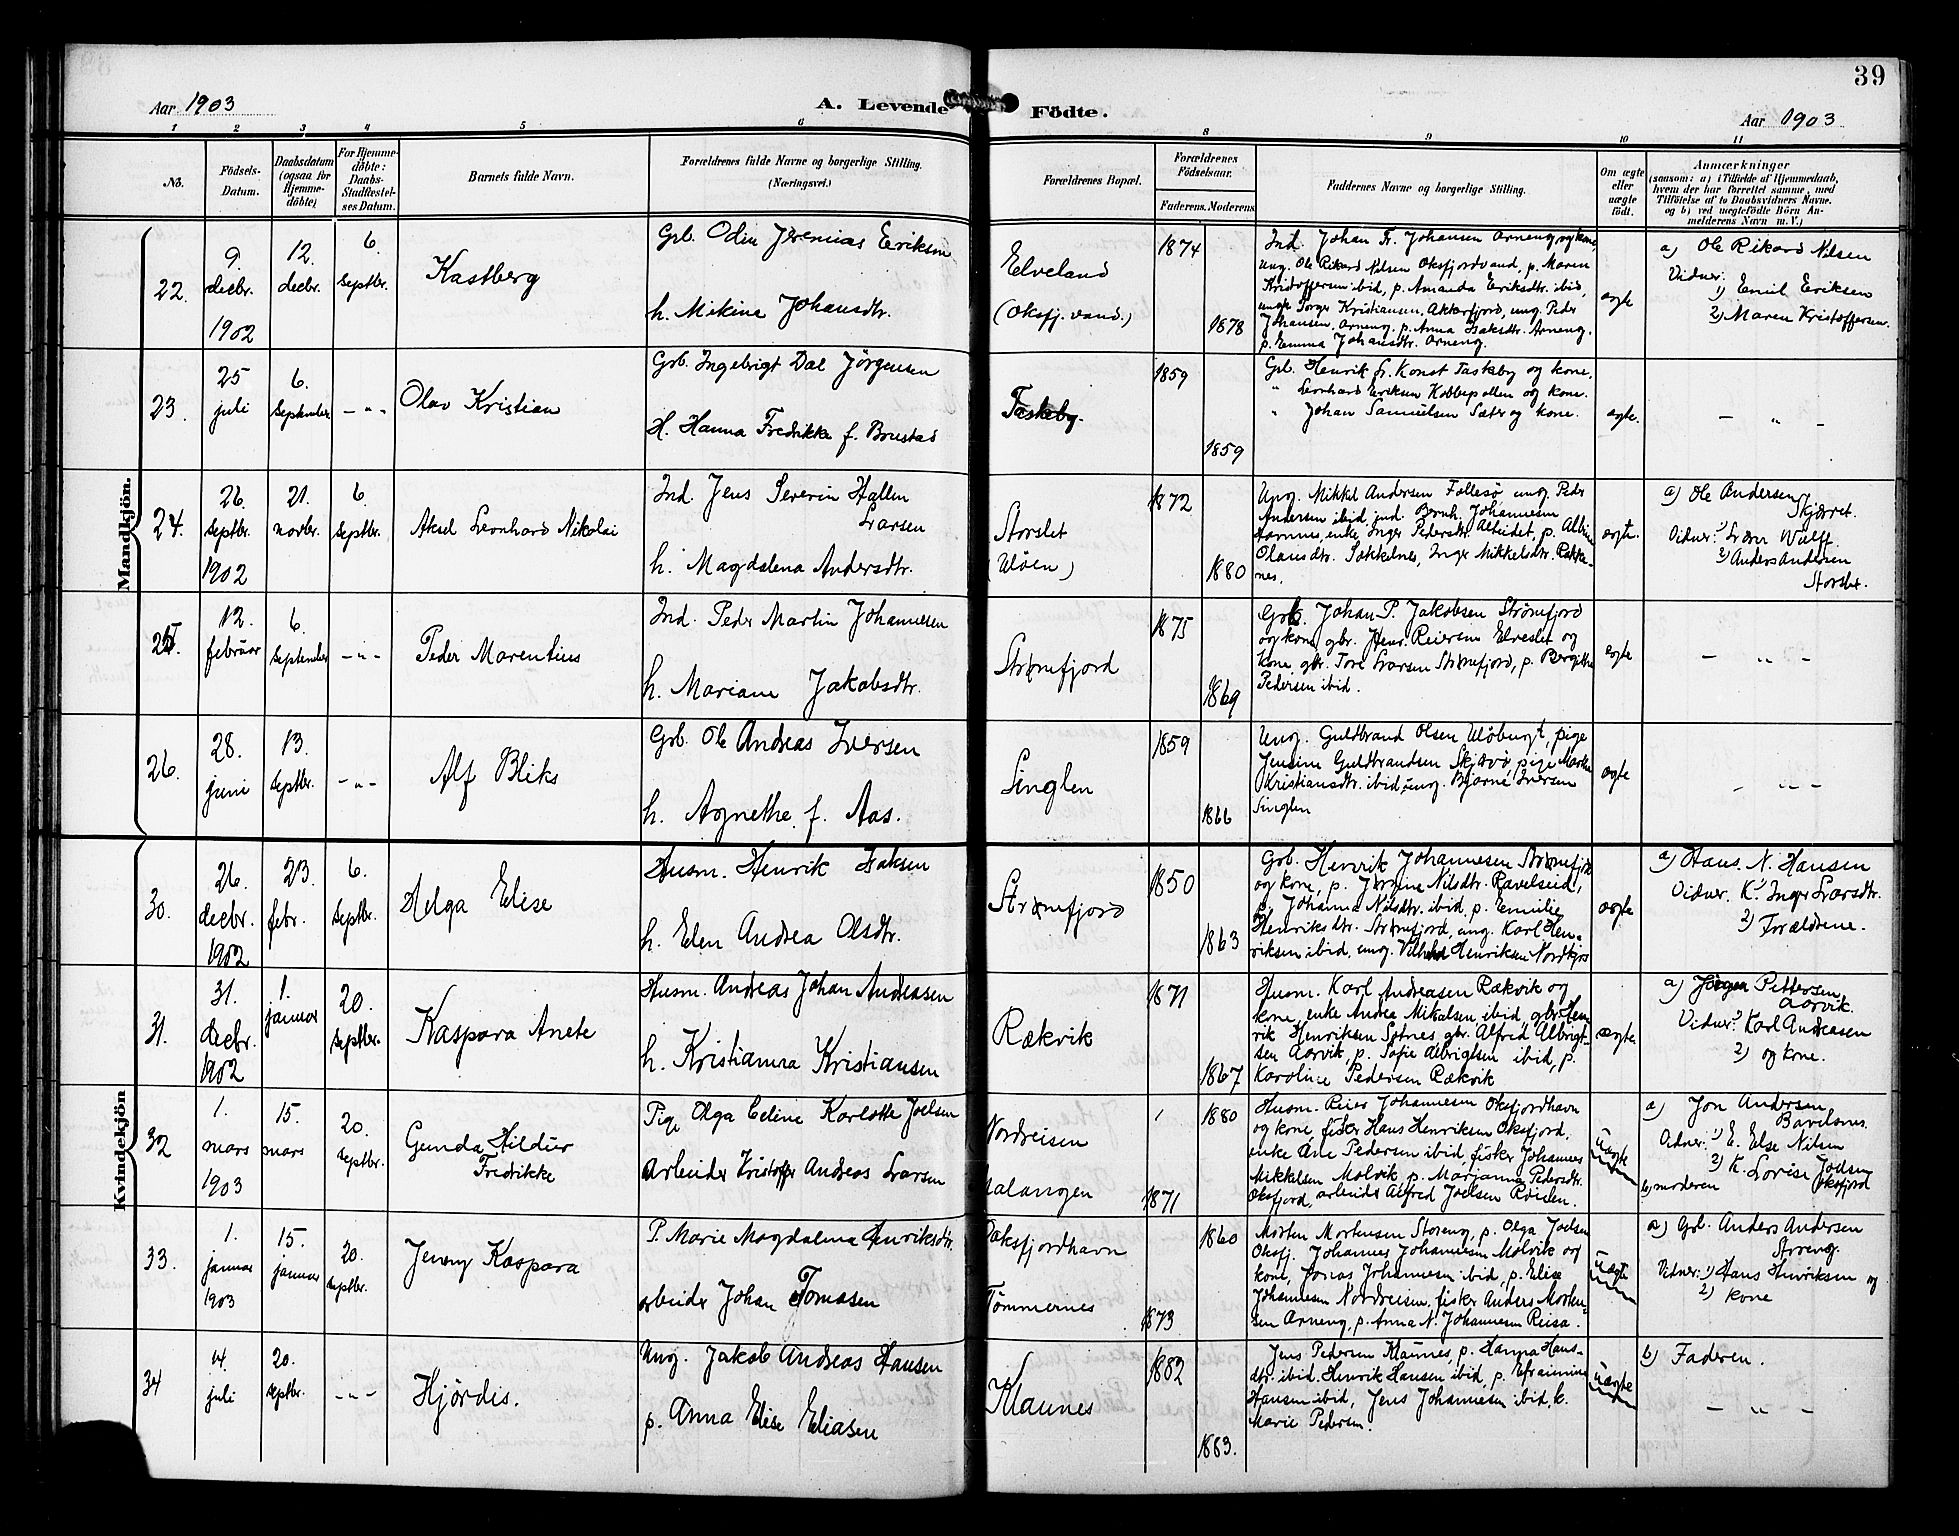 39
Aar 1903
A. Levende Födte.
Aar 1903
1 2 3 4 5 6 8 9 10 11
No.
Födsels-
Datum.
Daabsdatum
(ogsaa for
Hjemme-
döbte)
For Hjemme-
döbte:
Daabs-
Stadfæstel-
ses Datum.
Barnets fulde Navn.
Forældrenes fulde Navne og borgerlige Stilling.
(Næringsvei.)
Forældrenes Bopæl.
Forældrenes
Födselsaar.
Faderens. Moderens.
Faddernes Navne og borgerlige Stilling.
Om ægte
eller
uægte
født.
Anmærkninger
(saasom: a) i Tilfælde af Hjemmedaab,
hvem der har forrettet samme, med
Tilföielse af to Daabsvidners Navne.
og b) ved uægtefödte Börn An-
melderens Navn m. V.)
Mandkjön.
22.
9.
decbr.
1902
12.
decbr.
6.
Septbr.
Kastberg
Grb. Odin Jeremias Eriksen
h. Mikine Johansdtr.
Elveland
(Oksfj. vand.)
1874
1878
Ind. Johan Fr. Johansen Arneng og kone
ung. Ole Rikard Nilsen Oksfjordvand, p. Maren
Kristoffersen ibid, p. Amanda Eriksdtr. ibid,
ungk Torger Kristiansen, Akkarfjord, ung. Peder
Johansen, Arneng. p. Anna Isaksdtr. Arneng.
p. Emma Johansdtr. Arneng.
ægte
a) Ole Rikard Nilsen
Vidner: 1) Emil Eriksen
2) Maren Kristoffersen.
23.
25
juli
6.
September
- " -
Olav Kristian
Grb. Ingebrigt Dal Jörgensen
H. Hanna Fredrikke f. Brustad
Taskeby.
1859
1859
Grb. Henrik Fr. Konst Taskeby og kone.
" Leonhard Eriksen Kobbepollen og kone.
" Johan Samuelsen Sæter og kone.
ægte.
- " -
24.
26
septbr.
1902
21.
novbr.
6.
Septbr.
Aksel Leonhard Nikolai
Ind. Jens Severin Hallen
Larsen
h. Magdalena Andersdtr.
Storslet
(Ulöen)
1872
1880
Ung. Mikkel Andersen Follesö ung. Peder
Andersen ibid, ind. Bernh. Johannesen
Hamnes, enke Inger Pedersdtr. Alteidet, p. Albine
Olausdtr. Sokkelnes, Inger Mikkelsdtr. Rakke-
nes.
ægte.
a) Ole Andersen
Skjærvet.
Vidner: 1) Lærer Wulff
2) Anders Andersen
Storslet.
25.
12.
februar
6.
September
- " -
Peder Marentius
Ind. Peder Martin Johannesen
h. Mariane Jakobsdtr.
Straumfjord
1875
1869
Grb. Johan P. Jakobsen Strømfjord
og kone, gbr. Hans Reiersen Elveslet og
kone, gbr. Tore Larsen Strømfjord, p. Bergithe
Pedersen ibid.
ægte
- " -
26.
28.
juni
13.
Septbr.
- " -
Alf Bliks
Grb. Ole Andreas Iversen
h. Agnethe f. Aas.
Singlen
1859
1866
Ung. Guldbrand Olsen Ulöbugt, pige
Jensine Guldbrandsen Skjervö, pige Marie
Kristiansdtr. ibid, ung. Bjarne Iversen
Singlen
ægte
- " -
Kvindekjön
30.
26.
decbr.
1902
23.
febr.
6.
Septbr.
Helga Elise
Husm. Henrik Isaksen
h. Elen Andrea Olsdtr.
Strømefjord
1850
1863
Grb. Henrik Johannesen Strømefjord
og kone, p. Jörgine Nilsdtr. Ravelseid,
p. Johanna Nilsdtr. ibid, p. Emilie
Henriksdtr. Strømefjord, ung. Karl Hen-
riksen ibid, ung. Vilhelm Henriksen Nordkjos
ægte
a) Hans N. Hansen
Vidner. K. 1) Inger Larsdtr.
2) Forældrene.
31.
31.
decbr.
1902
1.
januar
20.
Septbr.
Kaspara Anete
Husm. Andreas Johan Andreasen
h. Kristianna Kristiansen
Rækvik
1871
1867
Husm. Karl Andreasen Rækvik og
kone, enke Andrea Mikalsen ibid, gbr. Hen-
rik Henriksen Sötnes, gbr. Alfred Albrigt-
sen Aarvik, p. Sofie Albrigtsen ibid, p.
Karoline Pedersen Rækvik
ægte
a) Jörgen Pettersen
Aarvik.
Vidner: 1) Karl Andreasen
2) og kone.
32
1.
mars
1903
15.
mars
20.
septbr.
Gunda Hildur
Fredrikke
Pige Olga Celine Karlotte Joelsen
Arbeider Kristoffer Andreas Larsen
Nordreisen
Malangen
1880
1871
Husm. Reier Johannesen Oksfjordhavn
og kone, fisker Hans Henriksen Oksfjord,
enke Ane Pedersen ibid, fisker Johannes
Mikkelsen Molvik, p. Marjanna Pedersdtr.
Oksfjord, arbeider Alfred Joelsen Reisen.
uægte
a) Jon Andersen
Bavelsnes.
Vidner: 1) E. Else Nilsen
2) K. Lovise Joelsen
Oksfjord
b) moderen
33.
1.
januar
1903
15.
januar
20.
septbr.
Jenny Kaspara
P. Marie Magdalena Henriksdtr.
arbeider Johan Tomasen
Oaksfjordhavn
Tömmernes
1860
1873
Morten Mortensen Storeng, p. Olga Joelsen
Oksfj. Johannes Johannesen Molvik og
kone, Jonas Johannesen ibid, p. Elise
Johannesen Nordreisen, fisker Anders Morten-
sen Arneng, p. Anna N. Johannesen Reisa.
uægte
a) Grb. Anders Andersen
Storeng.
Vidner: 1) Hans Henriksen og
2) kone
34
4.
juli
20.
septbr.
- " -
Hjördis.
Ung. Jakob Andreas Hansen
p. Anna Elise Eliasen
Maunes
1882
1883.
Jens Pedersen Maunes, p. Hanna Hans-
dtr. ibid. Henrik Hansen ibid, p. Efraimine
Hansen ibid, Jens Johannesen ibid, k.
Marie Pedersen.
uægte
b) Faderen.
- " -